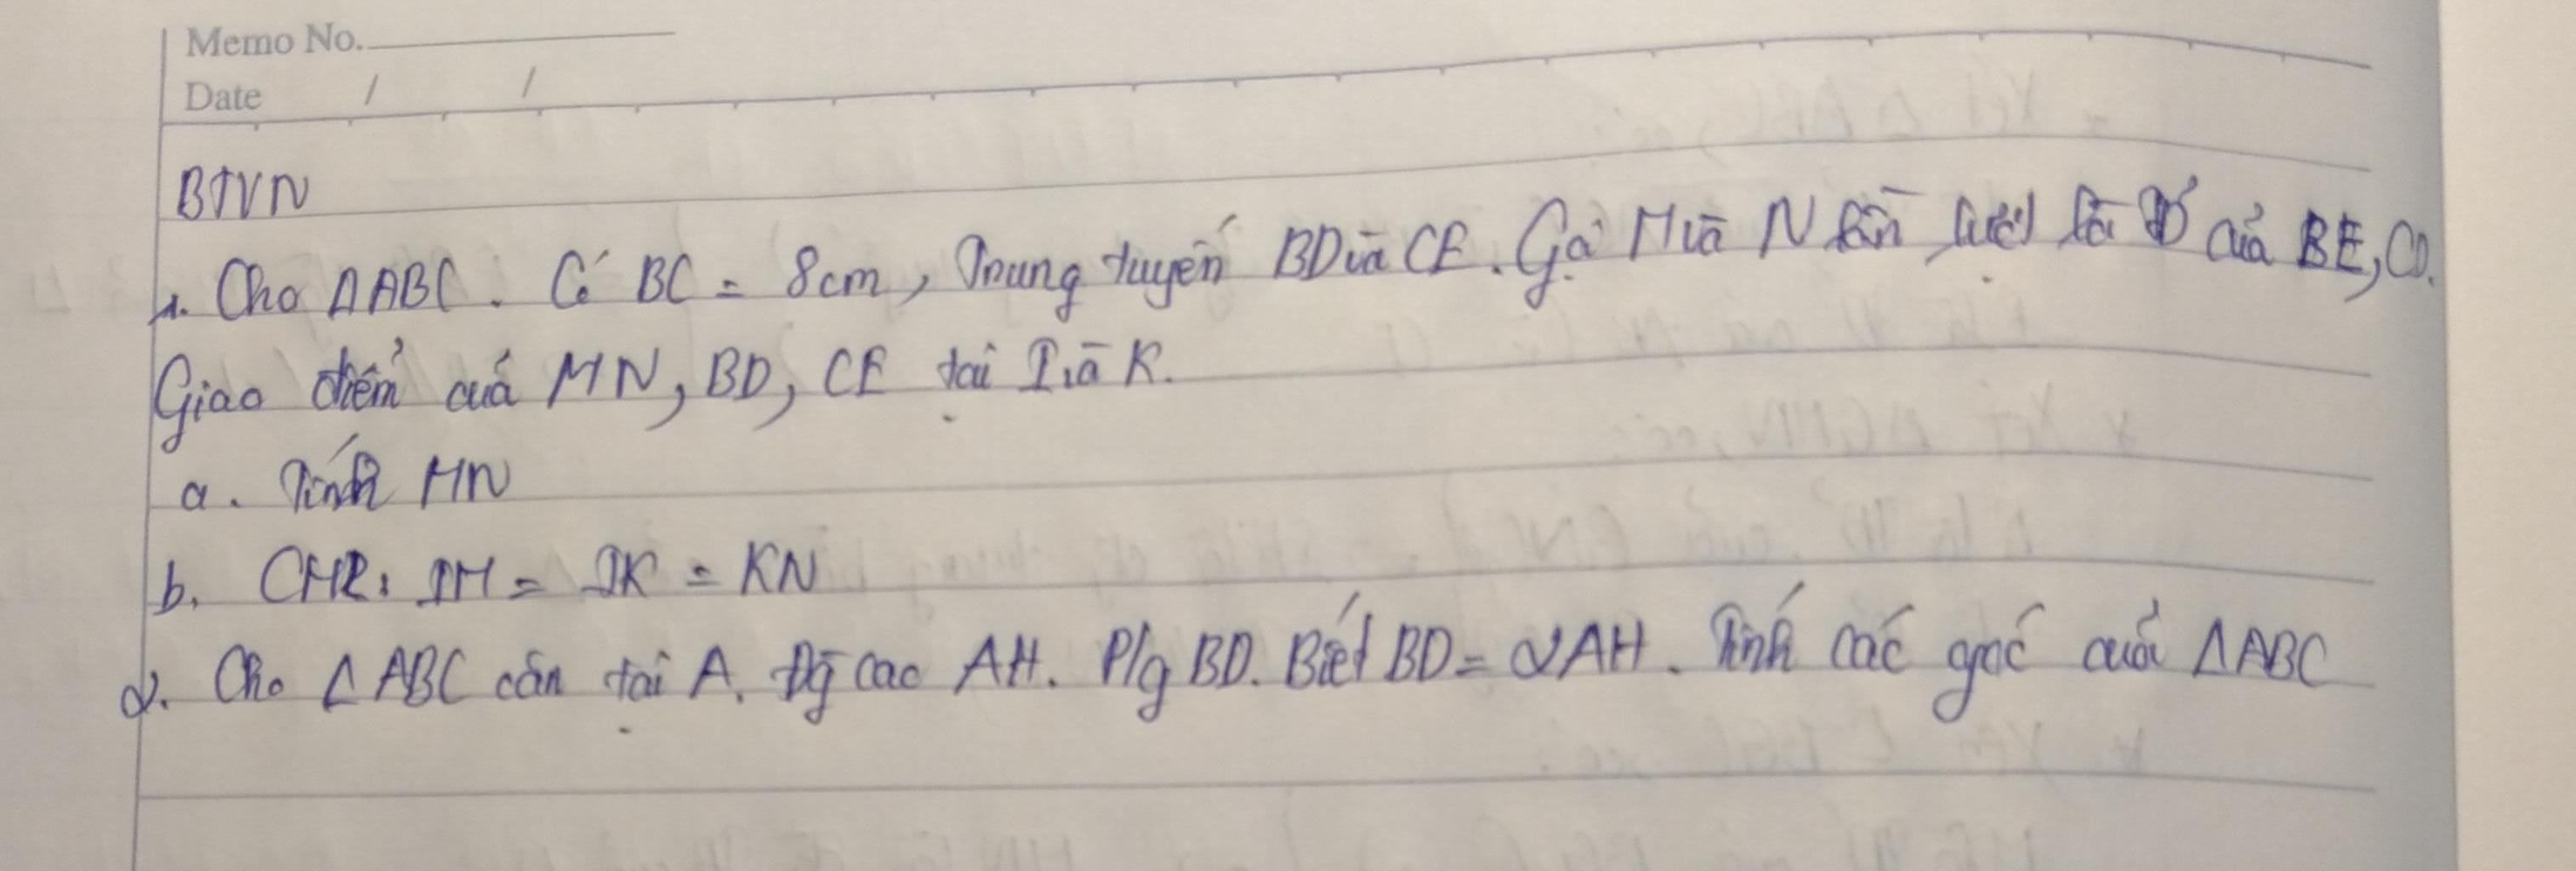 Memo No.
Date / /
BTVN
1. Cho ΔABC. Có BC = 8cm, Trung tuyến BD và CE. Gọi M và N lần lượt là TĐ của BE, CD.
Giao điểm của MN, BD, CE tại I và K.
a. Tính MN
b. CMR: IM = IK = KN
2. Cho ΔABC cân tại A. Đg cao AH. P/g BD. Biết BD = 2AH. Tính các góc của ΔABC